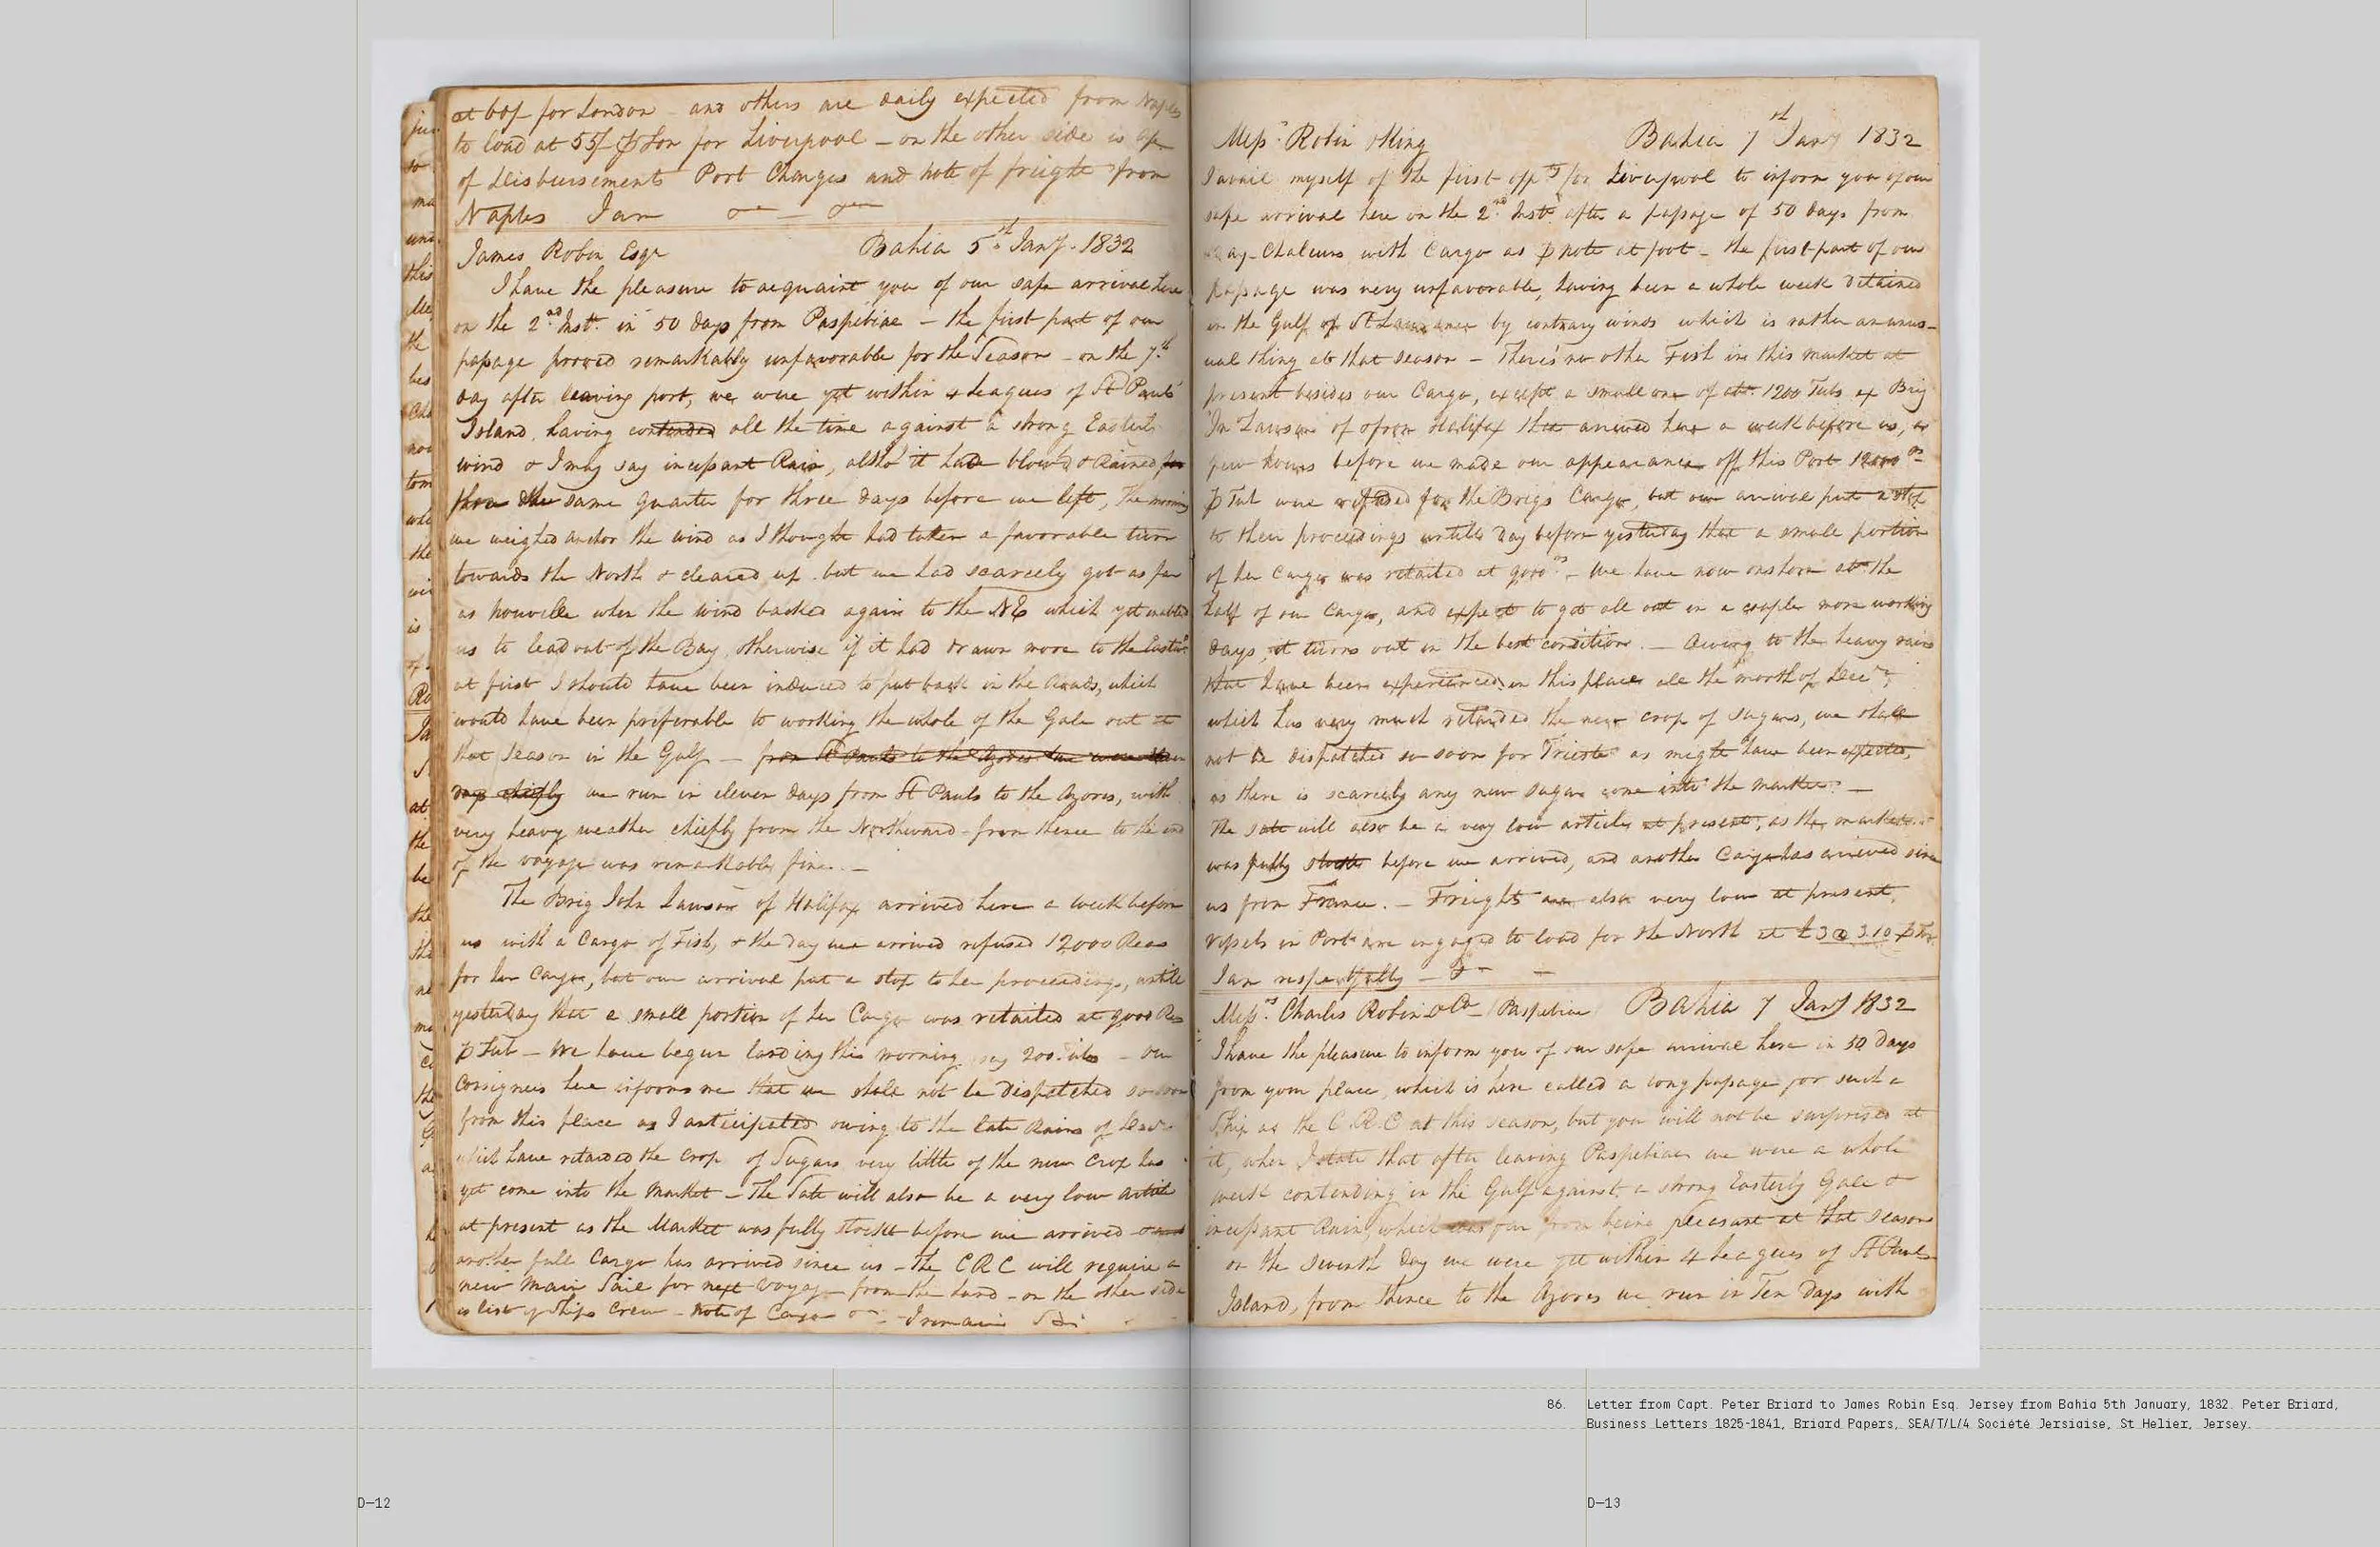 at 60/ for London – and others are daily expected from Naples
to load at 55/ ⅌ Ton for Liverpool – on the other side is
of Disbursements Port Charges and note of freight from
Naples I am
James Robin Esqr Bahia 5th Jany. 1832
I have the pleasure to acquaint you of our safe arrival here
on the 2nd Inst. in 50 days from Paspibiac – the first part of our
passage proved remarkably unfavorable for the Season – on the 7th
day after leaving port, we were yet within 4 Leagues of St Pauls
Island, having contended all the time against a strong Easterly
wind & I may say incessant Rain, altho' it had blow'd & Rained
the same quarter for three days before we left, The morning
we weighed anchor the wind as I thought had taken a favorable turn
towards the North & cleared up. but we had scarcely got as far
as when the wind backed again to the NE which yet enabled
us to lead out of the Bay, otherwise if it had drawn more to the
at first I should have been induced to put back in the Roads, which
would have been preferable to working the whole of the Gale out at
that Season in the Gulf – from St Pauls to the Azores we were
days chiefly we run in eleven days from St Pauls to the Azores, with
very heavy weather chiefly from the Northward – from thence to the end
of the voyage was remarkably fine. –
The Brig John Lawson of Halifax arrived here a week before
us with a Cargo of Fish, & the day we arrived refused 12000 Reas
for her Cargo, but our arrival put a stop to her proceedings, untill
yesterday that a small portion of her Cargo was retailed at 9000 Rs
⅌ Tub – We have begun landing this morning say 200 – our
Consignees here informs me that we shall not be dispatched so soon
from this place as I anticipated owing to the late Rains of
which have retarded the Crop of Sugars very little of the new Crop has
yet come into the Market – The Salt will also be a very low article
at present as the Market was fully stockt before we arrived – and
another full Cargo has arrived since us – the CRC will require a
new Main Sail for next Voyage from the hand – on the other side
is list of Ships Crew – Note of Cargo – I remain Sir
Messrs. Robin & King Bahia 7th Jany 1832
I avail myself of the first oppty for Liverpool to inform you of our
safe arrival here on the 2nd Inst. after a passage of 50 days from
Bay-Chaleurs with Cargo as ⅌ note at foot – the first part of our
passage was very unfavorable, having been a whole week detained
in the Gulf of St Lawrence by contrary winds which is rather an unus–
ual thing at that season – There's no other Fish in this market at
present besides our Cargo, except a small one of abt. 1200 Tubs ex Brig
Jn Lawson of & from Halifax that arrived here a week before us, a
few hours before we made our appearance off this Port 12000 rs
⅌ Tub were refused for the Brigs Cargo, but our arrival put a stop
to their proceedings untill day before yesterday that a small portion
of her Cargo was retailed at 9000 rs – We have now onshore abt the
half of our Cargo, and expect to get all out in a couple more working
days, it turns out in the best condition. – Owing to the heavy rains
that have been experienced in this place all the month of Decr,
which has very much retarded the new crop of sugars, we shall
not be dispatched so soon for Trieste as might have been expected,
as there is scarcely any new sugar come into the market. –
The salt will also be a very low article at present, as the market
was fully stockt before we arrived, and another Cargo has arrived since
us from France. – Freights are also very low at present,
vessels in Port are engaged to load for the North at £3 @ 3.10 ⅌ Ton.
I am respectfully –
Messrs. Charles Robin & Co Paspibiac Bahia 7 Jany 1832
I have the pleasure to inform you of our safe arrival here in 50 Days
from your place, which is here called a long passage for such a
Ship as the C.R.C at this season, but you will not be surprised at
it, when I state that after leaving Paspibiac we were a whole
week contending in the Gulf against a strong Easterly Gale &
incessant Rain, which was far from being pleasant at that season
on the seventh Day we were yet within 4 Leagues of St Pauls
Island, from thence to the Azores we run in Ten Days with
86. Letter from Capt. Peter Briard to James Robin Esq. Jersey from Bahia 5th January, 1832. Peter Briard,
Business Letters 1825-1841, Briard Papers, SEA/T/L/4 Société Jersiaise, St Helier, Jersey.
D—12
D—13